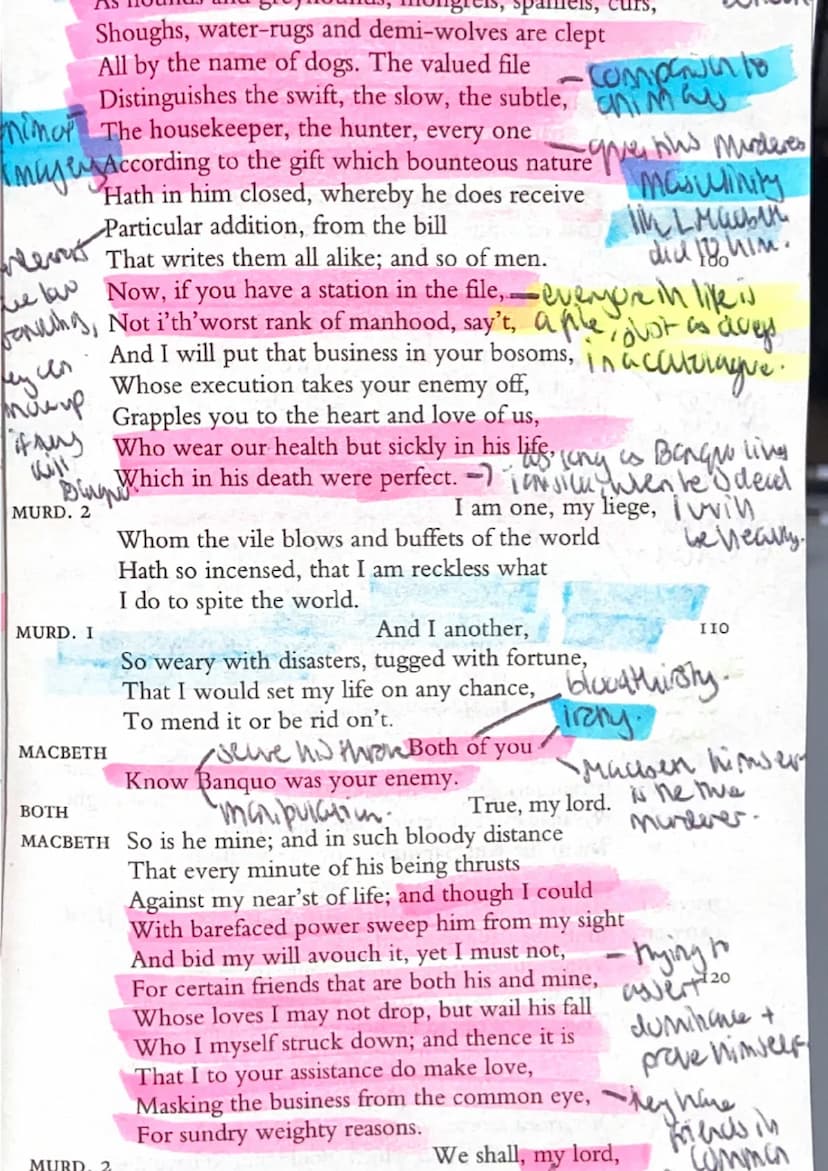 As hounds and greyhounds, mongrels, spaniels, curs,
Shoughs, water-rugs and demi-wolves are clept
All by the name of dogs. The valued file
Distinguishes the swift, the slow, the subtle,
The housekeeper, the hunter, every one
According to the gift which bounteous nature
Hath in him closed, whereby he does receive
Particular addition, from the bill
That writes them all alike; and so of men.
Now, if you have a station in the file,
Not i'th'worst rank of manhood, say't,
And I will put that business in your bosoms,
Whose execution takes your enemy off,
Grapples you to the heart and love of us,
Who wear our health but sickly in his life,
Which in his death were perfect.
MURD. 2 I am one, my liege,
Whom the vile blows and buffets of the world
Hath so incensed, that I am reckless what
I do to spite the world.
MURD. 1 And I another, 110
So weary with disasters, tugged with fortune,
That I would set my life on any chance,
To mend it or be rid on't.
MACBETH Both of you
Know Banquo was your enemy.
BOTH True, my lord.
MACBETH So is he mine; and in such bloody distance
That every minute of his being thrusts
Against my near'st of life; and though I could
With barefaced power sweep him from my sight
And bid my will avouch it, yet I must not,
For certain friends that are both his and mine, 120
Whose loves I may not drop, but wail his fall
Who I myself struck down; and thence it is
That I to your assistance do make love,
Masking the business from the common eye,
For sundry weighty reasons.
MURD. 2 We shall, my lord,
animals
murderers
masculinity
did to him.
everyone in life is
a file, just as dogs
in a catalogue.
kill
Banquo
as long as Banquo lives
when he's dead
I will
be healthy.
bloodthirsty.
irony.
his throne
manipulation.
Macbeth himself
is the true
murderer.
trying to
assert
dominance +
prove himself
they have
friends in
common